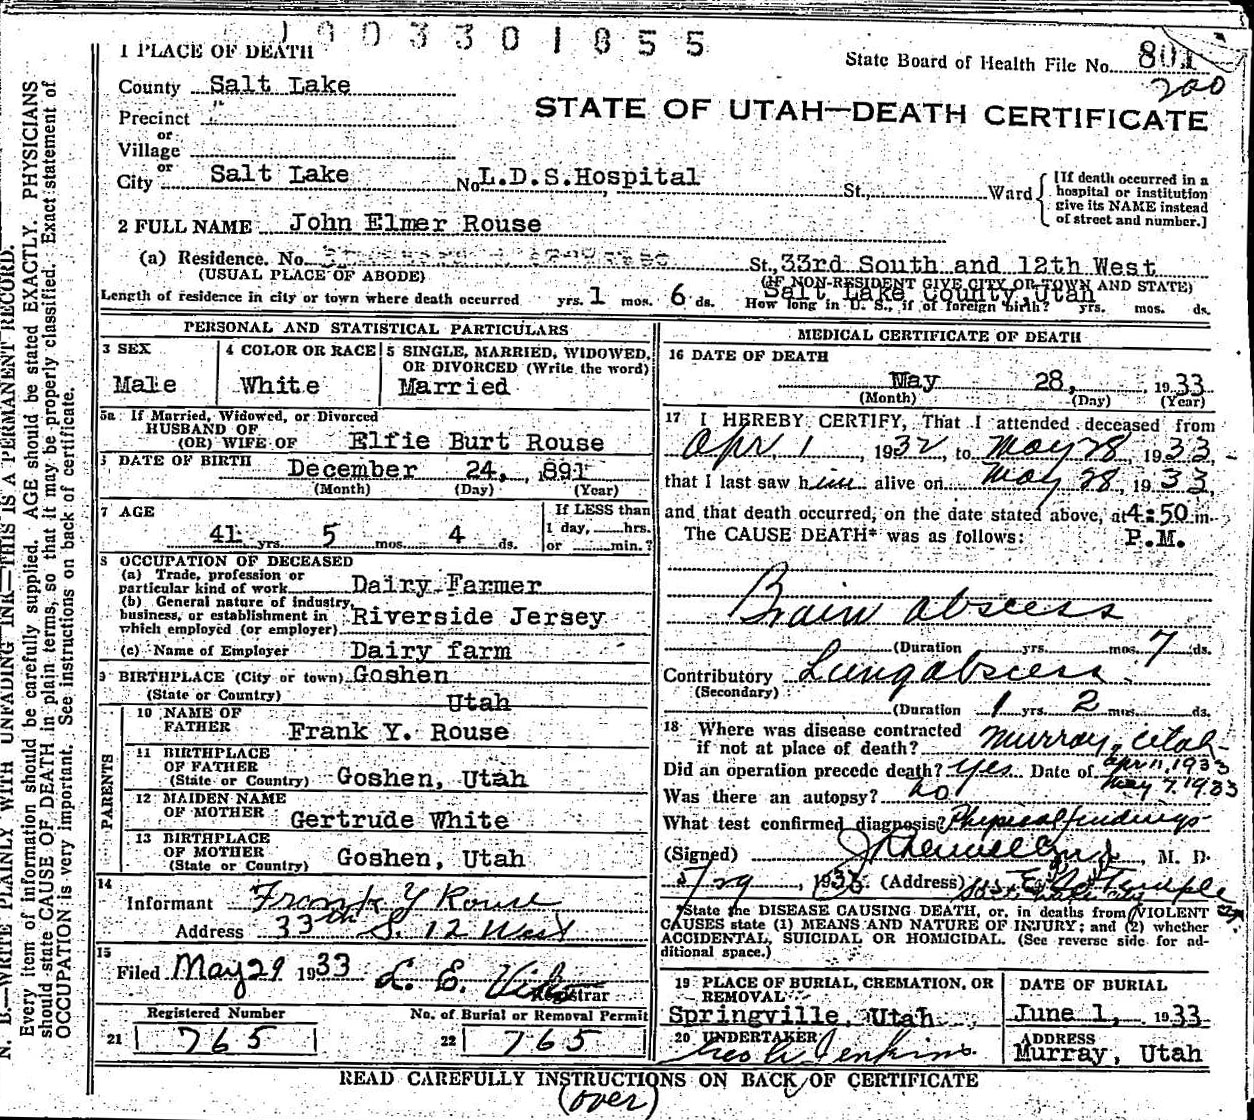 1003301055
1 PLACE OF DEATH
State Board of Health File No. 801
200
County Salt Lake
STATE OF UTAH—DEATH CERTIFICATE
Precinct "
or
Village
or
City Salt Lake No L.D.S.Hospital St., Ward
[If death occurred in a
hospital or institution
give its NAME instead
of street and number.]
2 FULL NAME John Elmer Rouse
(a) Residence. No. St., 33rd South and 12th West
(USUAL PLACE OF ABODE) (IF NON-RESIDENT GIVE CITY OR TOWN AND STATE)
Salt Lake County, Utah
Length of residence in city or town where death occurred yrs. 1 mos. 6 ds. How long in U. S., if of foreign birth? yrs. mos. ds.
PERSONAL AND STATISTICAL PARTICULARS
3 SEX
Male
4 COLOR OR RACE
White
5 SINGLE, MARRIED, WIDOWED,
OR DIVORCED (Write the word)
Married
5a If Married, Widowed, or Divorced
HUSBAND OF
(OR) WIFE OF Elfie Burt Rouse
DATE OF BIRTH
December 24, 891
(Month) (Day) (Year)
7 AGE
41 yrs. 5 mos. 4 ds.
If LESS than
1 day, hrs.
or min.?
8 OCCUPATION OF DECEASED
(a) Trade, profession or
particular kind of work Dairy Farmer
(b) General nature of industry,
business, or establishment in
which employed (or employer) Riverside Jersey
(c) Name of Employer Dairy farm
9 BIRTHPLACE (City or town) Goshen
(State or Country) Utah
PARENTS
10 NAME OF
FATHER Frank Y. Rouse
11 BIRTHPLACE
OF FATHER
(State or Country) Goshen, Utah
12 MAIDEN NAME
OF MOTHER Gertrude White
13 BIRTHPLACE
OF MOTHER
(State or Country) Goshen, Utah
14
Informant Frank Y Rouse
Address 33th S. 12 West
15
Filed May 29 1933 L. E.
Registrar
Registered Number
21 765
No. of Burial or Removal Permit
22 765
MEDICAL CERTIFICATE OF DEATH
16 DATE OF DEATH
May 28, 1933
(Month) (Day) (Year)
17 I HEREBY CERTIFY, That I attended deceased from
Apr. 1, 1932, to May 28, 1933,
that I last saw him alive on May 28, 1933,
and that death occurred, on the date stated above, at 4:50 m.
The CAUSE DEATH* was as follows: P.M.
Brain abscess
(Duration yrs. mos. 7 ds.
Contributory Lung abscess
(Secondary)
(Duration 1 yrs. 2 mos. ds.
18 Where was disease contracted
if not at place of death? Murray, Utah
Did an operation precede death? yes Date of Apr 11, 1933
May 7, 1933
Was there an autopsy? no
What test confirmed diagnosis? Physical findings
(Signed) M. D.
5/29, 1933 (Address) Temple
*State the DISEASE CAUSING DEATH, or, in deaths from VIOLENT
CAUSES state (1) MEANS AND NATURE OF INJURY; and (2) whether
ACCIDENTAL, SUICIDAL OR HOMICIDAL. (See reverse side for ad-
ditional space.)
19 PLACE OF BURIAL, CREMATION, OR
REMOVAL
Springville, Utah
DATE OF BURIAL
June 1, 1933
20 UNDERTAKER
Jenkins
ADDRESS
Murray, Utah
READ CAREFULLY INSTRUCTIONS ON BACK OF CERTIFICATE
(over)
N. B.—WRITE PLAINLY WITH UNFADING INK—THIS IS A PERMANENT RECORD.
Every item of information should be carefully supplied. AGE should be stated EXACTLY. PHYSICIANS
should state CAUSE OF DEATH in plain terms, so that it may be properly classified. Exact statement of
OCCUPATION is very important. See instructions on back of certificate.